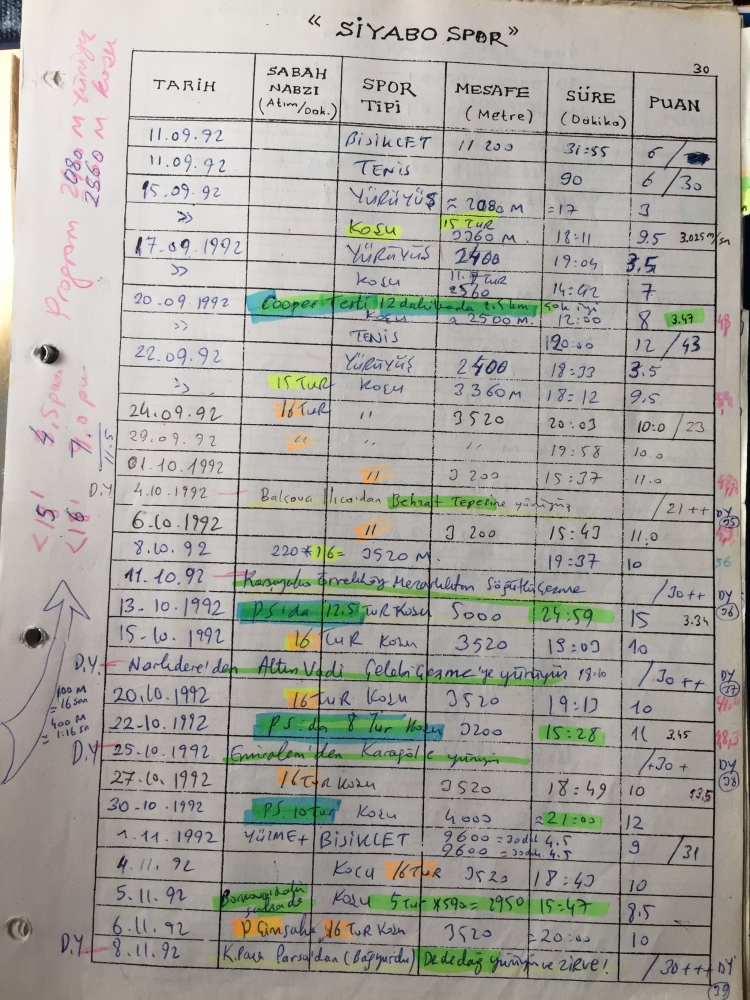 “ SİYABO SPOR”
30
TARİH SABAH NABZI (Atım/Dak.) SPOR TİPİ MESAFE (Metre) SÜRE (Dakika) PUAN
11.09.92 BİSİKLET 11 200 31:55 6 /
11.09.92 TENİS 90 6 / 30
15.09.92 YÜRÜYÜŞ ≈ 2080 M =17 3
>> KOŞU 15 TUR 3360 M. 18:11 9.5 3.025 m/sn
17.09.1992 YÜRÜYÜŞ 2400 19:04 3.5
>> KOŞU TUR 2560 14:42 7
20.09.1992 Cooper Testi 12 dakikada 2.5 km çok iyi
>> KOŞU ≈ 2500 M. 12:00 8 3.47
TENİS 120:00 12 / 43
22.09.1992 YÜRÜYÜŞ 2400 18:33 3.5
>> 15 TUR KOŞU 3360 M 18:12 9.5
24.09.92 16 TUR " 3520 20:03 10.0 / 23
29.09.92 " " " 19:58 10.0
01.10.1992 " 3200 15:37 11.0
D.Y 4.10.1992 Balçova Ilıca'dan Behzat Tepesine yürüyüş / 21 ++ DY 35
6.10.1992 " 3200 15:43 11.0
8.10.92 220*16= 3520 M. 19:37 10 56
11.10.92 Karşıyaka Örnekköy Mezarlıktan Söğütlüçeşme / 30 ++ DY 36
13-10.1992 P.S.'da 12.5 TUR KOŞU 5000 24:59 15 3.34
15-10.1992 16 TUR KOŞU 3520 19:03 10
D.Y. Narlıdere'den Altın Vadi Çelebi Çeşme'ye yürüyüş 18.10 / 30 ++ DY 37
20.10.1992 16 TUR KOŞU 3520 19:13 10
22-10.1992 P.S.'da 8 Tur Koşu 3200 15:28 11 3.45 48,3
D.Y 25.10.1992 Emiralem'den Karagöl'e yürüyüş /+30 + DY 38
27.10.1992 16 TUR KOŞU 3520 18:49 10 13.5
30-10-1992 P.S. 10 Tur KOŞU 4000 =21:00 12
1.11.1992 YÜZME+ BİSİKLET 9600 = 30dk 4.5 9 / 31
9600 = 30dk 4.5
4.11.92 KOŞU 16 TUR 3520 18:43 10
5.11.92 KOŞU 5 Tur *590= 2950 15:47 8.5
6.11.92 16 TUR KOŞU 3520 =20:00 10
D.Y. 8.11.92 K.Paşa Parsa'dan (Bağyurdu) Dededağ yürüyüş ve ZİRVE! / 30+++ DY 39
Program 2080 M yürüyüş
2560 M koşu
<15'
<18'
11.5
100 M
= 16 sn
400 M
= 1:16 sn